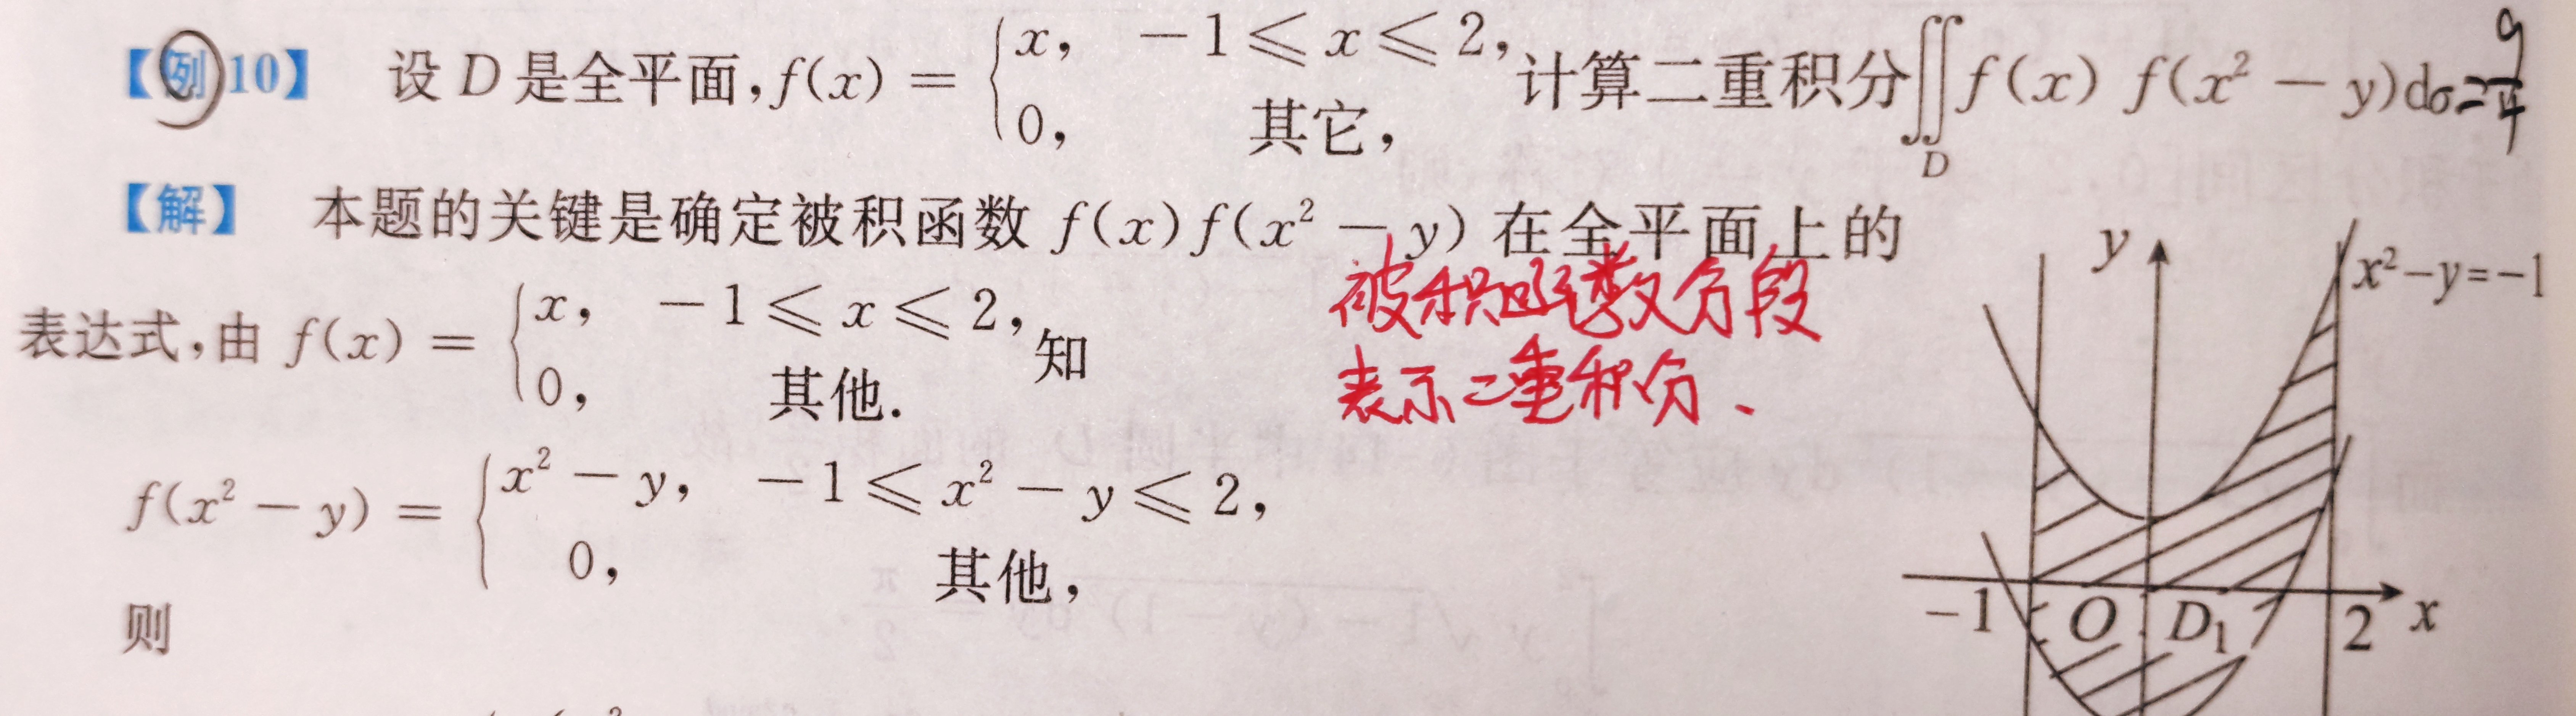 【例10】 设 D 是全平面,f(x) = { x, −1 ⩽ x ⩽ 2, 0, 其它, 计算二重积分∬_D f(x) f(x² − y)dσ = 9/4
【解】 本题的关键是确定被积函数 f(x)f(x² − y) 在全平面上的
表达式,由 f(x) = { x, −1 ⩽ x ⩽ 2, 0, 其他. 知
被积函数分段
表示二重积分、
f(x² − y) = { x² − y, −1 ⩽ x² − y ⩽ 2, 0, 其他,
则
y
x²−y=−1
−1 O D₁ 2 x